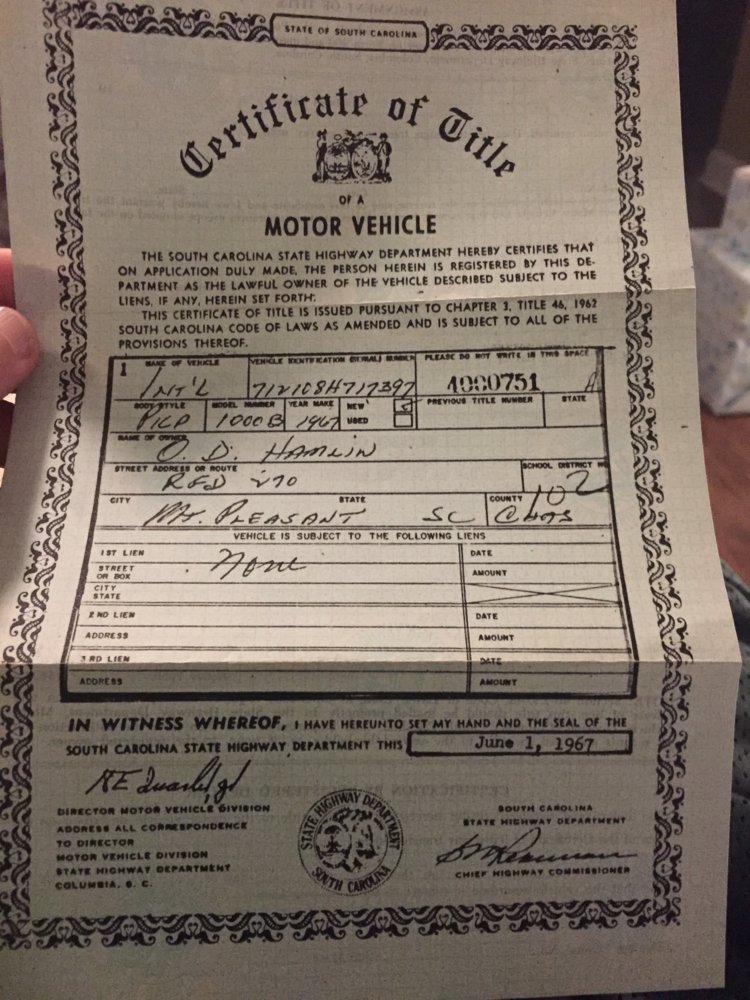 STATE OF SOUTH CAROLINA
Certificate of Title
OF A
MOTOR VEHICLE
THE SOUTH CAROLINA STATE HIGHWAY DEPARTMENT HEREBY CERTIFIES THAT
ON APPLICATION DULY MADE, THE PERSON HEREIN IS REGISTERED BY THIS DE-
PARTMENT AS THE LAWFUL OWNER OF THE VEHICLE DESCRIBED SUBJECT TO THE
LIENS, IF ANY, HEREIN SET FORTH.
THIS CERTIFICATE OF TITLE IS ISSUED PURSUANT TO CHAPTER 3, TITLE 46, 1962
SOUTH CAROLINA CODE OF LAWS AS AMENDED AND IS SUBJECT TO ALL OF THE
PROVISIONS THEREOF.
1 NAME OF VEHICLE VEHICLE IDENTIFICATION (SERIAL) NUMBER PLEASE DO NOT WRITE IN THIS SPACE
INT'L 712108H717397 4000751 A
BODY STYLE MODEL NUMBER YEAR MAKE NEW USED PREVIOUS TITLE NUMBER STATE
PICP 1000B 1967
NAME OF OWNER
O. D. HAMLIN
STREET ADDRESS OR ROUTE SCHOOL DISTRICT NO
RFD 270 102
CITY STATE COUNTY
Mt. PLEASANT SC CHAS
VEHICLE IS SUBJECT TO THE FOLLOWING LIENS
1ST LIEN None DATE
STREET OR BOX AMOUNT
CITY STATE
2ND LIEN DATE
ADDRESS AMOUNT
3RD LIEN DATE
ADDRESS AMOUNT
IN WITNESS WHEREOF, I HAVE HEREUNTO SET MY HAND AND THE SEAL OF THE
SOUTH CAROLINA STATE HIGHWAY DEPARTMENT THIS June 1, 1967
DIRECTOR MOTOR VEHICLE DIVISION
ADDRESS ALL CORRESPONDENCE
TO DIRECTOR
MOTOR VEHICLE DIVISION
STATE HIGHWAY DEPARTMENT
COLUMBIA, S. C.
STATE HIGHWAY DEPARTMENT
SOUTH CAROLINA
SOUTH CAROLINA
STATE HIGHWAY DEPARTMENT
CHIEF HIGHWAY COMMISSIONER